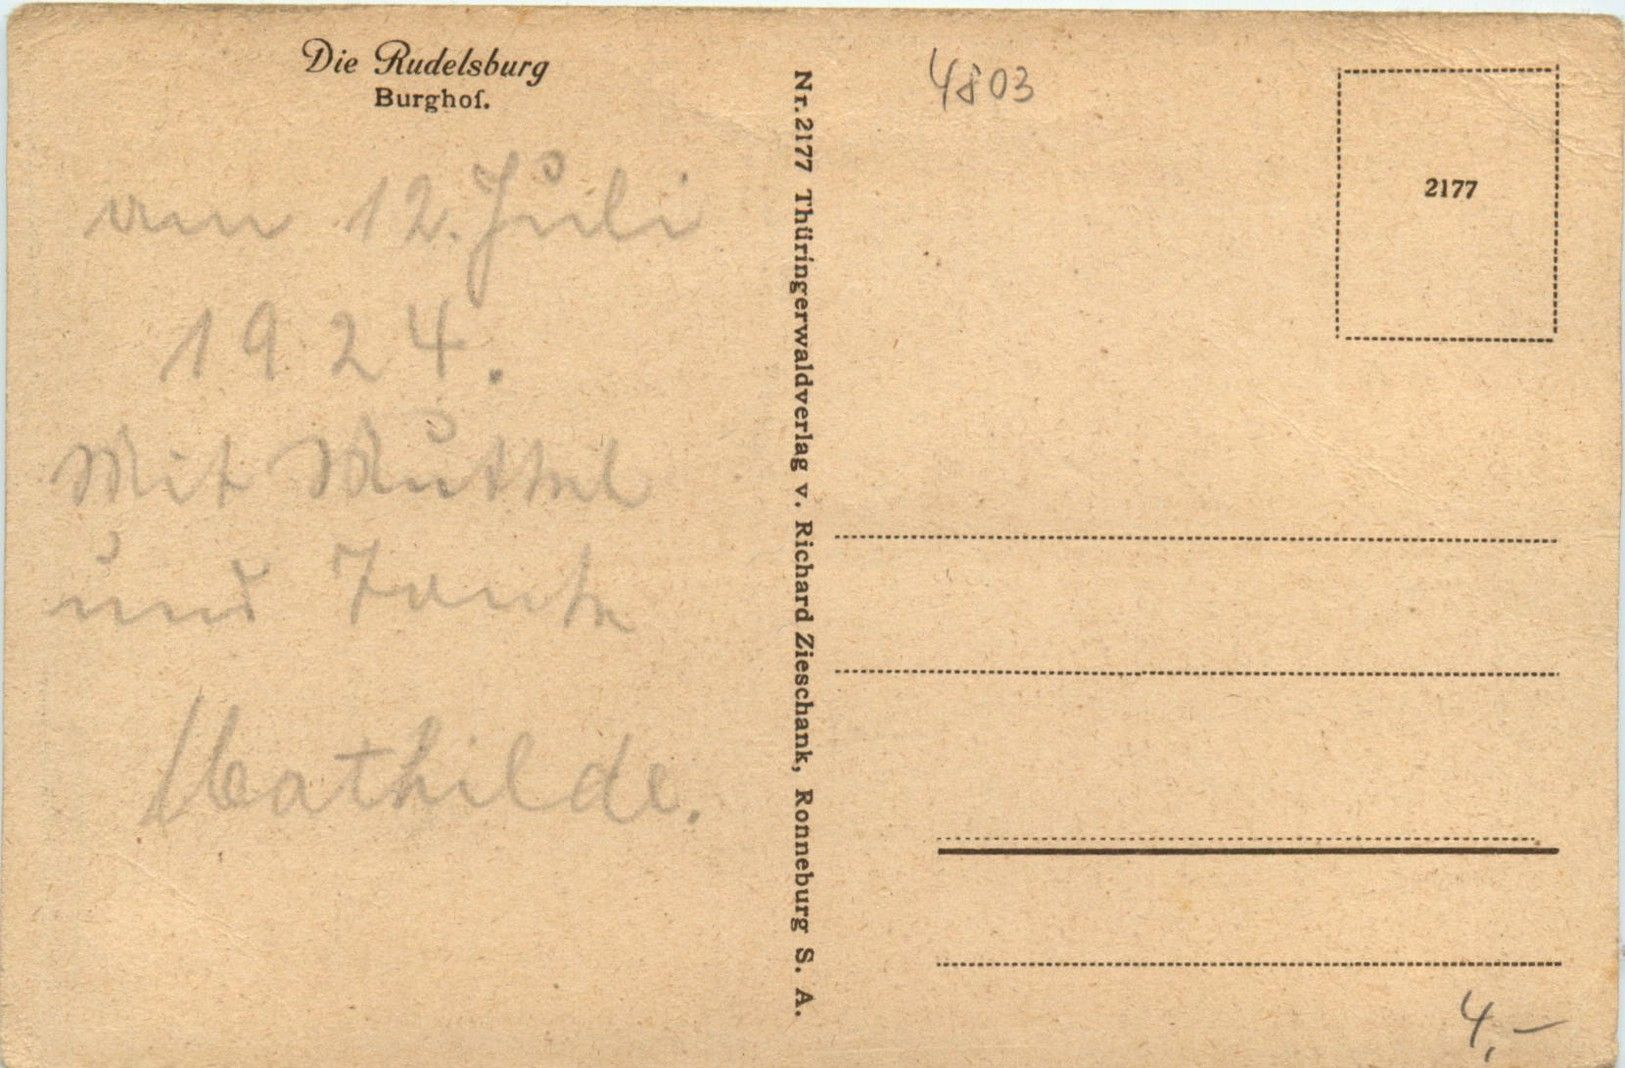 Die Rudelsburg
Burghof.
am 12. Juli
1924.
Mit
und Tante
Mathilde.
Nr. 2177 Thüringerwaldverlag v. Richard Zieschank, Ronneburg S. A.
4803
2177
4,–